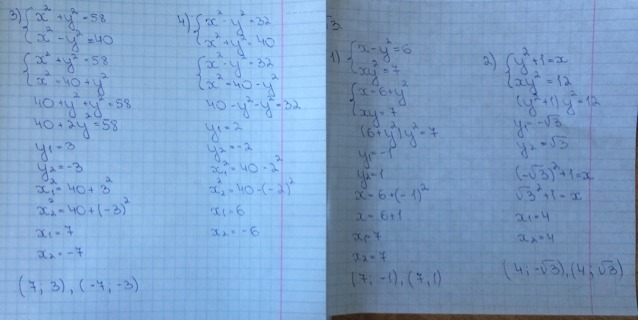 3) { x² + y² = 58
x² - y² = 40
{ x² + y² = 58
x² = 40 + y²
40 + y² + y² = 58
40 + 2y² = 58
y₁ = 3
y₂ = -3
x₁² = 40 + 3²
x₂² = 40 + (-3)²
x₁ = 7
x₂ = -7
(7; 3), (-7; -3)
4) { x² - y² = 32
x² + y² = 40
{ x² - y² = 32
x² = 40 - y²
40 - y² - y² = 32
y₁ = 2
y₂ = -2
x₁² = 40 - 2²
x₂² = 40 - (-2)²
x₁ = 6
x₂ = -6
1) { x - y² = 6
xy² = 7
{ x = 6 + y²
xy = 7
(6 + y²) y² = 7
y₁ = -1
y₂ = 1
x = 6 + (-1)²
x = 6 + 1
x₁ = 7
x₂ = 7
(7; -1), (7, 1)
2) { y² + 1 = x
xy² = 12
(y² + 1) y² = 12
y₁ = -√3
y₂ = √3
(-√3)² + 1 = x
√3² + 1 = x
x₁ = 4
x₂ = 4
(4; -√3), (4; √3)